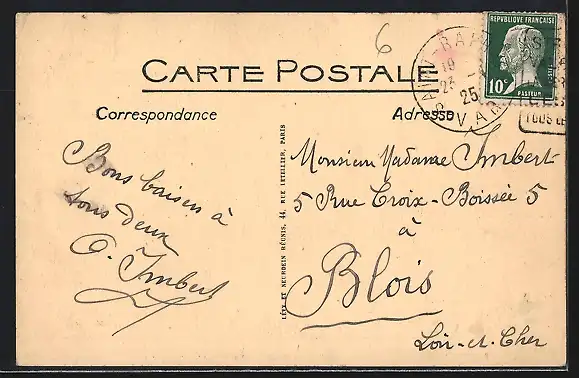 6
REPUBLIQUE FRANÇAISE
10c
POSTES
PASTEUR
SAINT-RAPH
19
23
25
VAR
TOUS LE
CARTE POSTALE
Correspondance
Adresse
Bons baisers à
tous deux
O. Imbert
LÉVY ET NEURDEIN RÉUNIS, 44, RUE LETELLIER, PARIS
Monsieur Madame Imbert
5 Rue Croix-Boissée 5
à
Blois
Loir-et-Cher